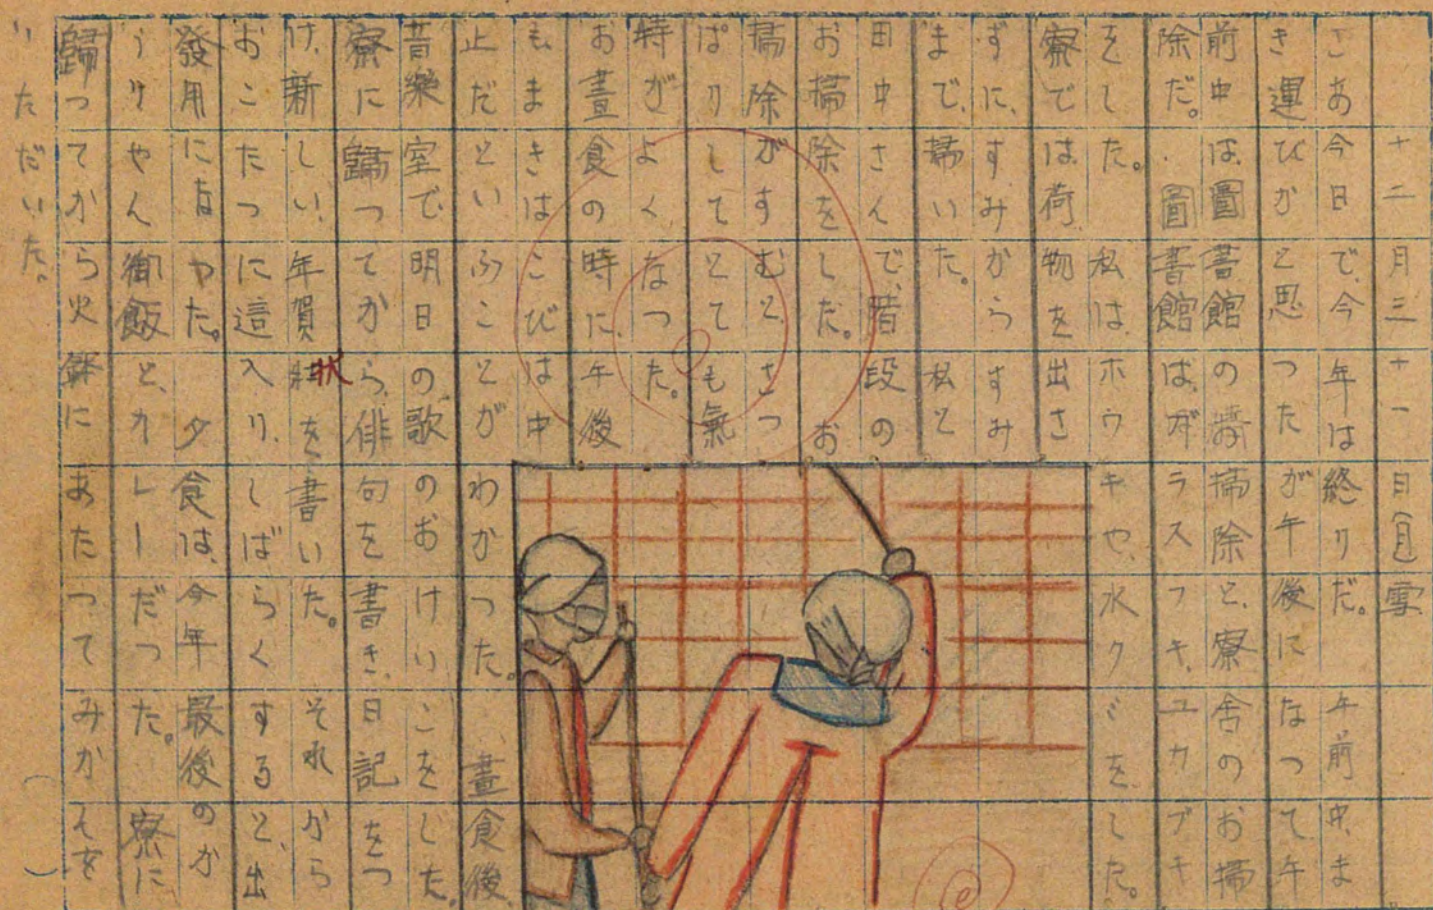 十二月三十一日(月)雪
さあ今日で、今年は終りだ。午前中、ま
き運びかと思ったが午後になって午
前中は、圖書館の掃除と、寮舎のお掃
除だ。圖書館は、ガラスフキ、ユカブキ
をした。私は、ホウキや、水クミをした。
寮では荷物を出さ
ずに、すみからすみ
まで、掃いた。私と
田中さんで、階段の
お掃除をした。お
掃除がすむと、さっ
ぱりしてとても氣
持がよくなった。
お晝食の時に、午後
もまきはこびは中
止だといふことがわかった。晝食後、
音樂室で、明日の歌のおけいこをした。
寮に歸ってから、俳句を書き、日記をつ
け、新しい、年賀状を書いた。それから
おこたつに這入り、しばらくすると、出
發用になつた。夕食は、今年最後のか
うりやん御飯と、カレーだった。寮に
歸ってから火鉢にあたってみかんを
いただいた。